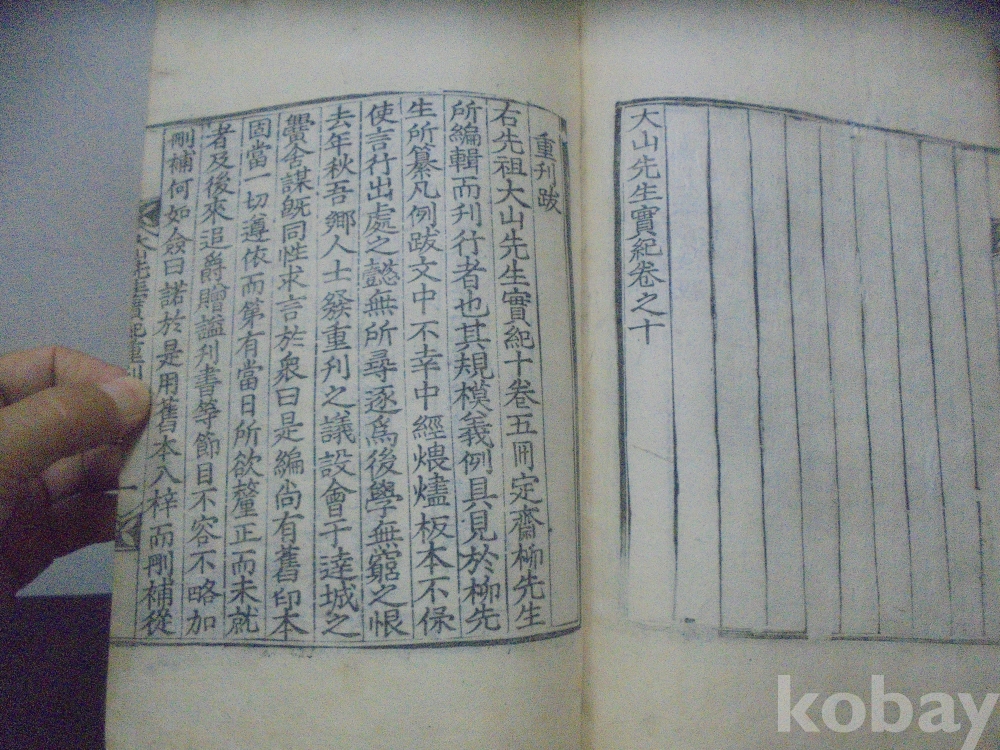 大山先生實紀卷之十
重刊跋
右先祖大山先生實紀十卷五冊定齋柳先生
所編輯而刊行者也其規模義例具見於柳先
生所纂凡例跋文中不幸中經煨燼板本不保
使言行出處之懿無所尋逐爲後學無窮之恨
去年秋吾鄉人士發重刊之議設會于達城之
黌舍謀旣同性求言於衆曰是編尙有舊印本
固當一切遵依而第有當日所欲釐正而未就
者及後來追爵贈謚列書等節目不容不略加
刪補何如僉曰諾於是用舊本入梓而刪補從
大山先生實紀重刊
一
kobay